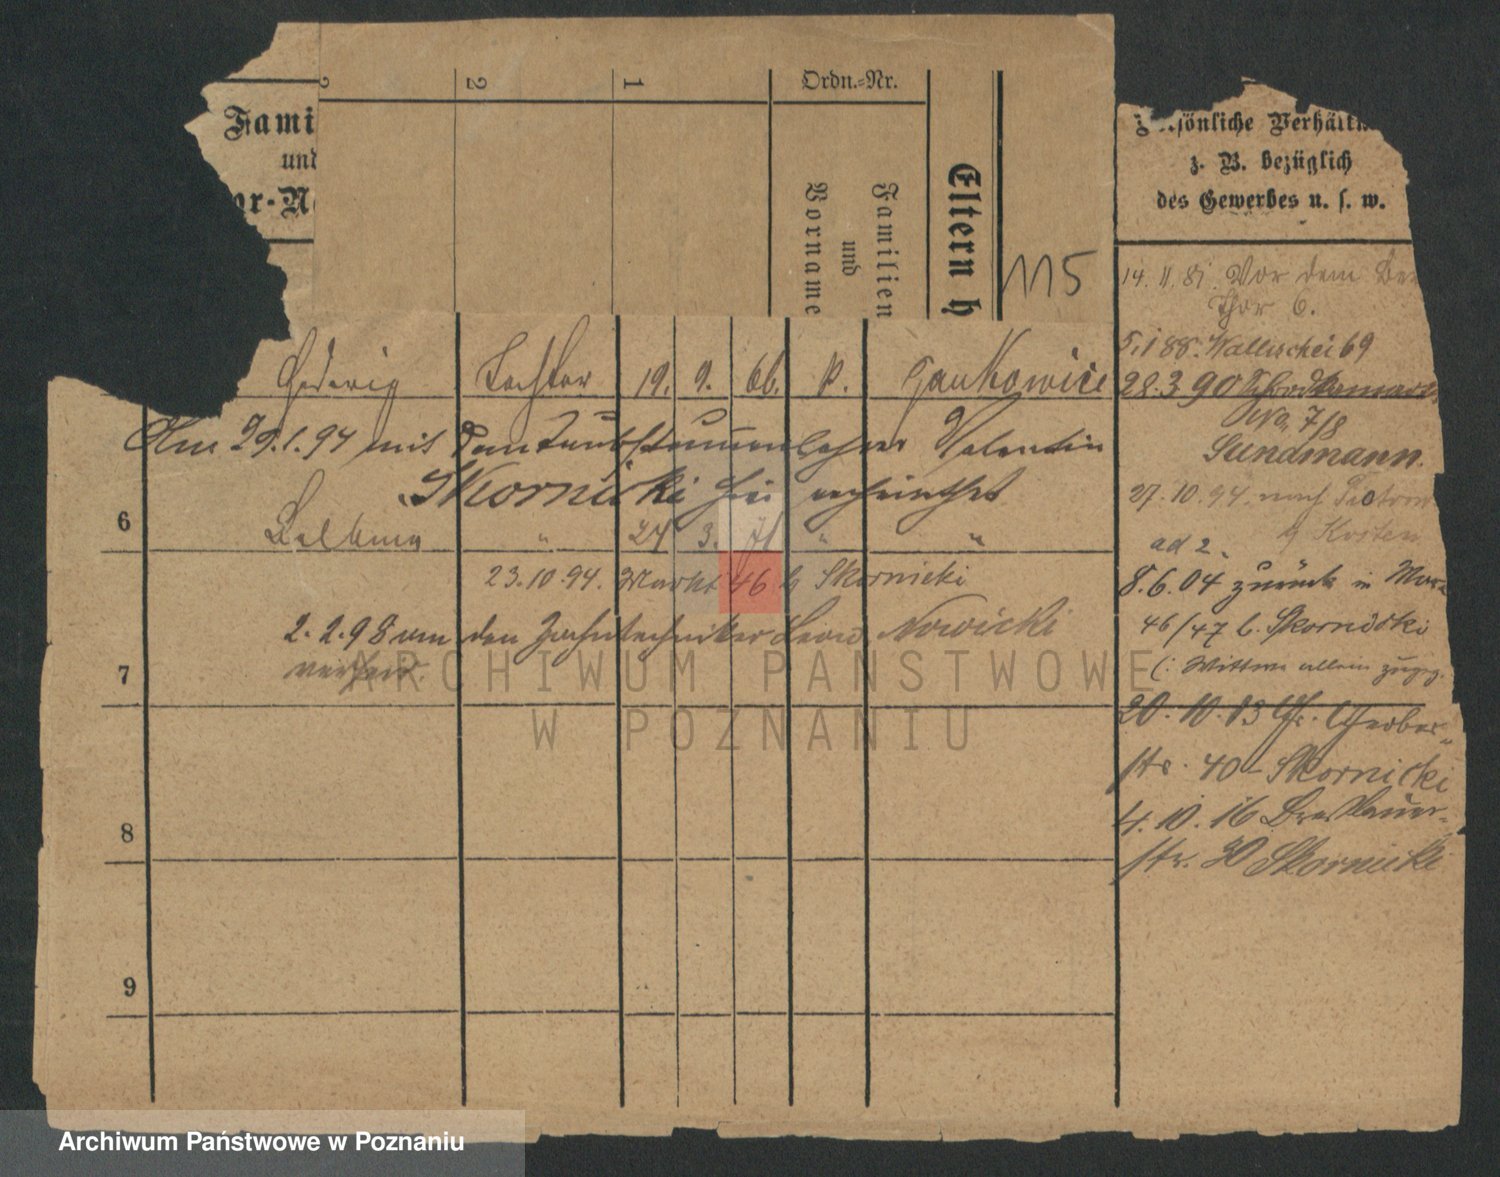 Fami
und
or-N
2
2
1
Ordn.-Nr.
Familien
und
Vorname
Eltern h
115
Persönliche Verhält
z. B. bezüglich
des Gewerbes u. s. w.
14. 11. 81. Vor dem Ber
Thor 6.
5.1 88. Wallischei 69
28.3 90
No. 7/8
Sundmann.
27.10.94. nach
b Kosten
ad 2.
8.6.04 zurück in Mar
46/47 b. Skornicki
(: Wittwe allein zugzg.
20. 10. 13 Gr. Gerber-
str. 40 - Skornicki
4. 10. 16 Breslauer-
str. 30 Skornicki
Hedwig Tochter 19. 9. 66. k. Jankowice
Am 29.1.94 mit dem Taubstummenlehrer Valentin
Skornicki hier verheirathet
6 24 3. 71 " "
23.10.94. Markt 46 b Skornicki
2. 2. 98 an den Zahntechniker Leon Nowicki
7 verheir.
8
9
ARCHIWUM PAŃSTWOWE
W POZNANIU
Archiwum Państwowe w Poznaniu